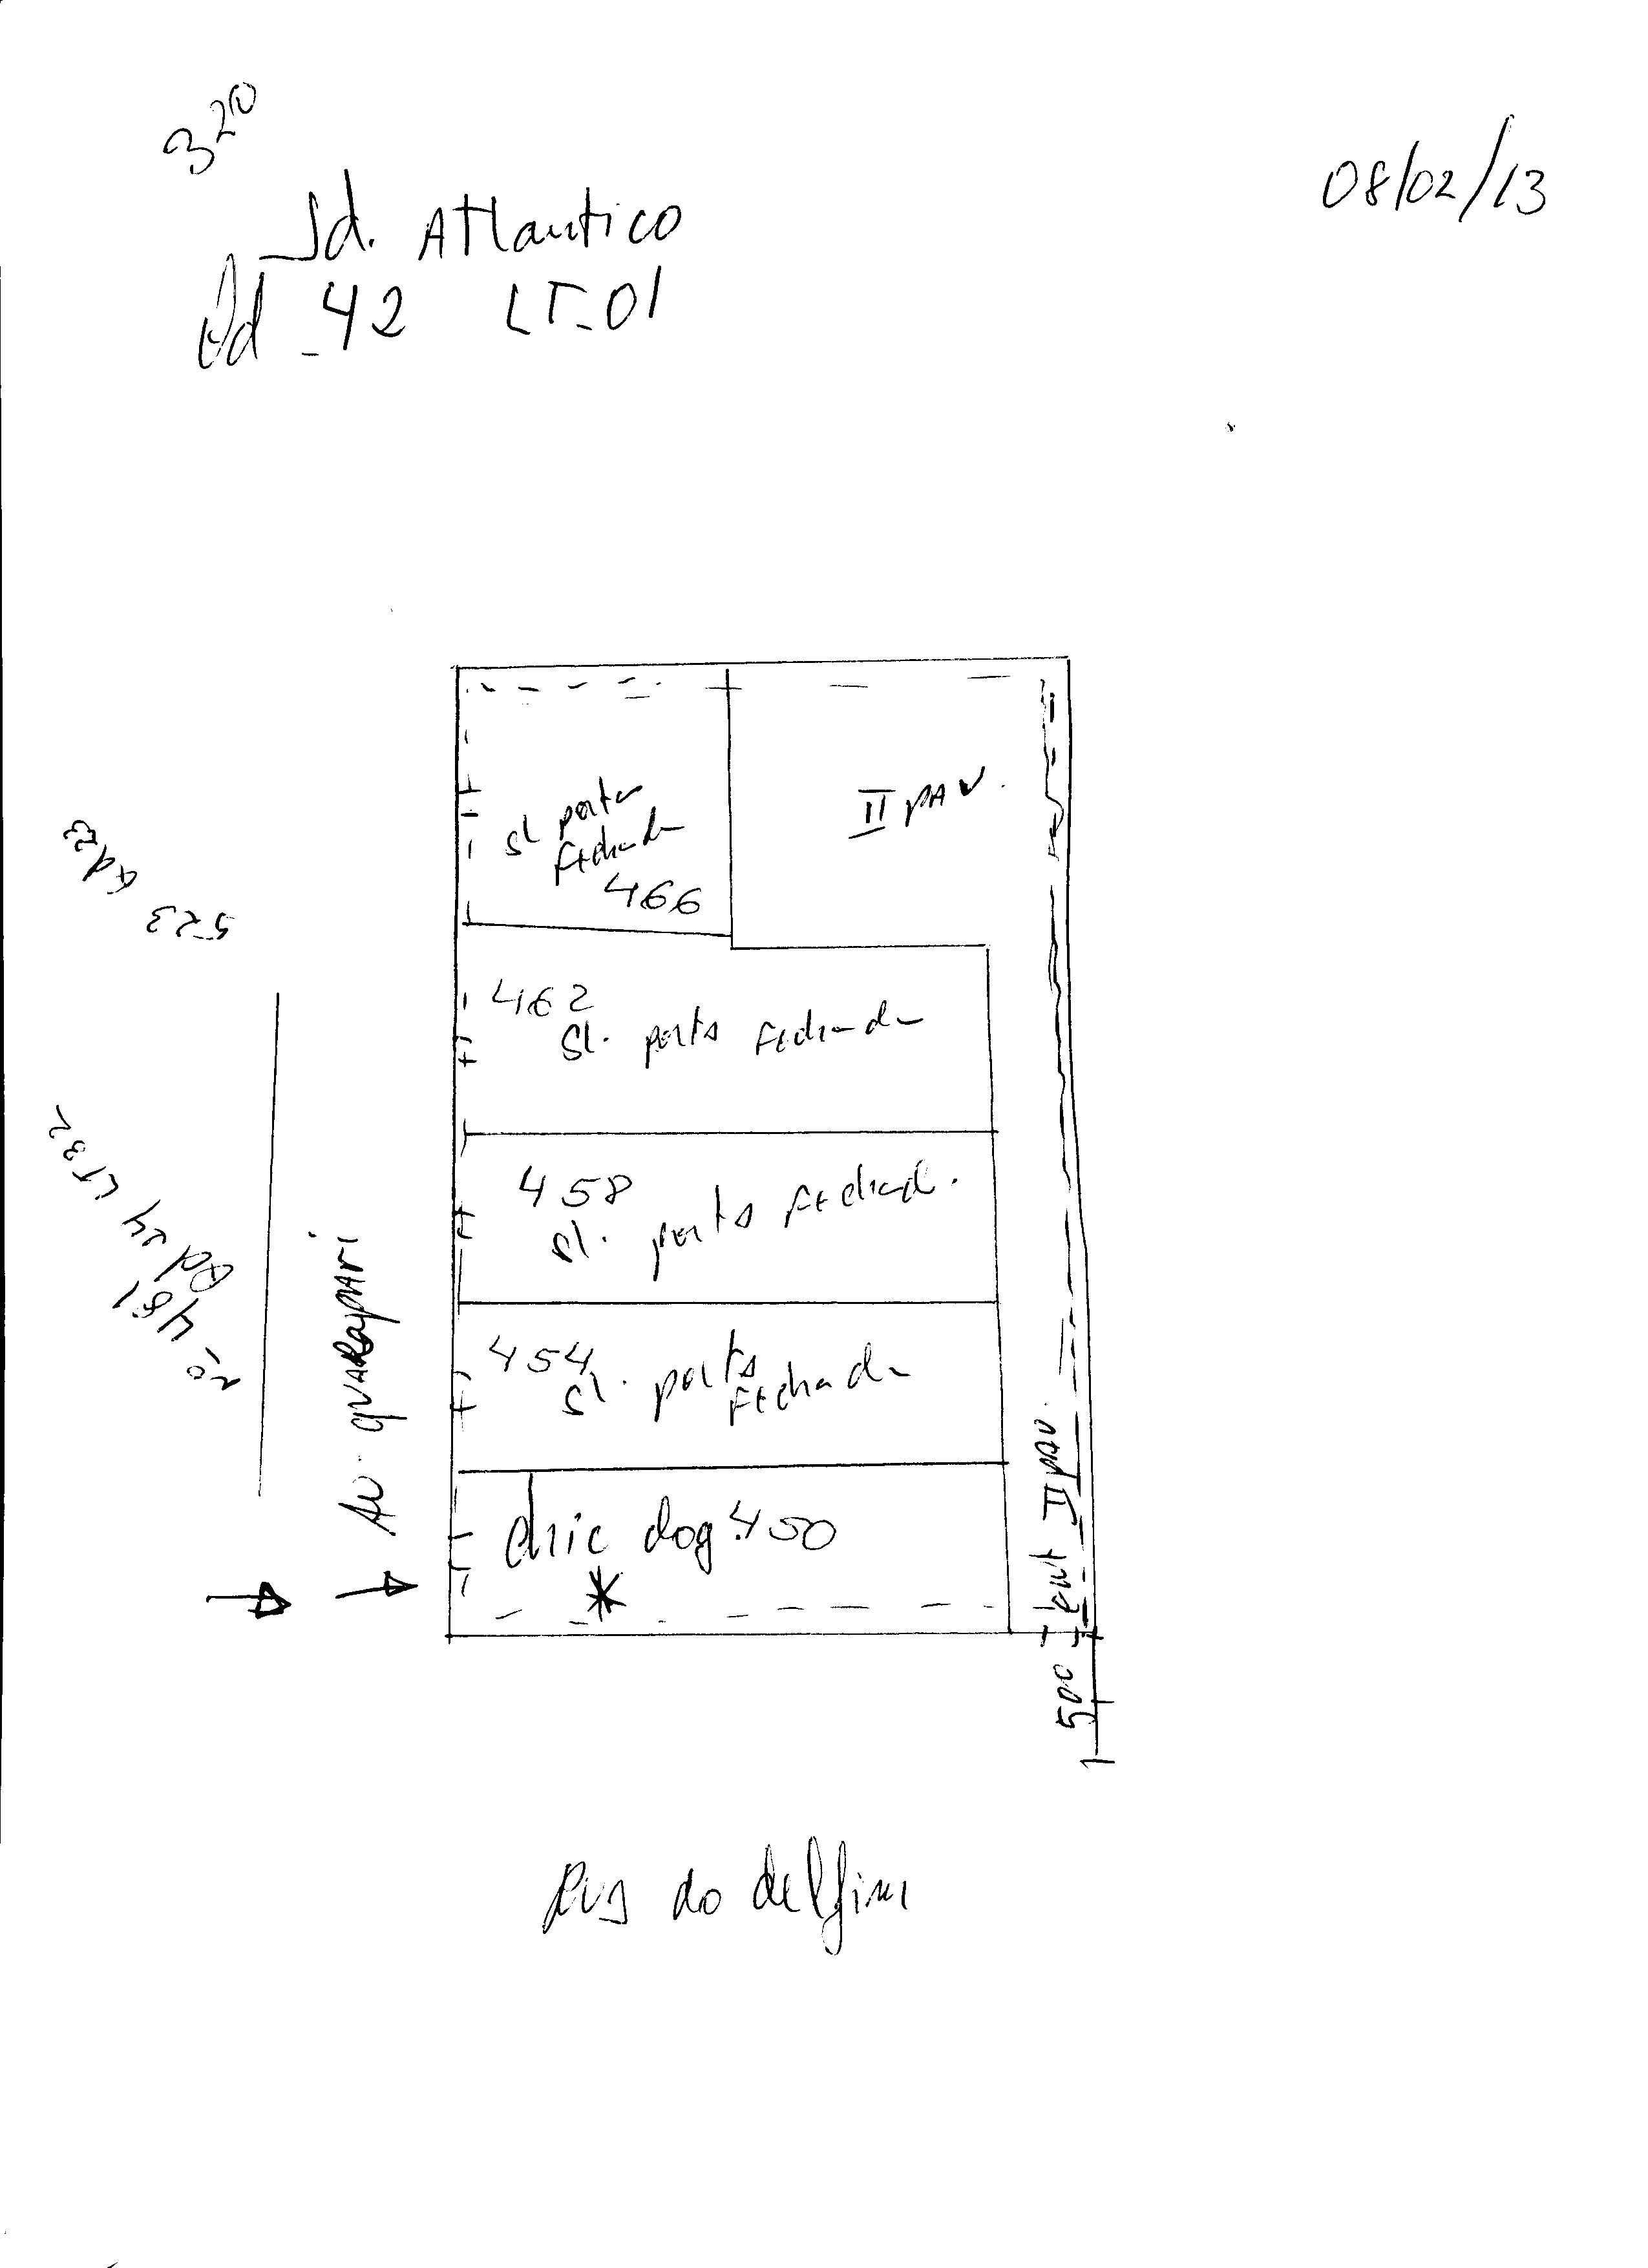 320
08/02/13
Jd. Atlantico
Qd - 42 LT-01
II pAV.
sl porta
fechada
466
523 qd23
462
sl. porta fechada
458
sl. porta fechad.
nº 481
Qd 24 LT 32
Av. guarapari
454
sl. porta
fechada
chic dog 450
ent II pav.
500
Rua do delfim